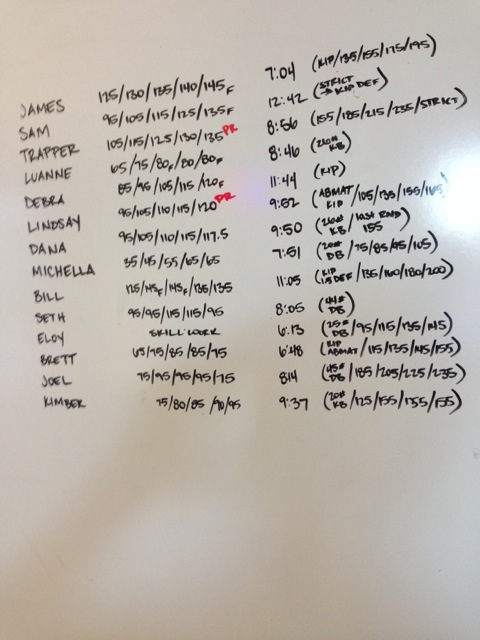 JAMES 125/130/135/140/145F 7:04 (KIP/135/155/175/195)
SAM 95/105/115/125/135F 12:42 (STRICT → KIP DEF)
TRAPPER 105/115/125/130/135 PR 8:56 (155/185/215/235/STRICT)
LUANNE 65/75/80F/80/80F 8:46 (26# KB)
DEBRA 85/95/105/115/120F 11:44 (KIP)
LINDSAY 95/105/110/115/120 PR 9:02 (ABMAT KIP/105/135/155/165)
DANA 95/105/110/115/117.5 9:50 (26# KB/LAST RND 155)
MICHELLA 35/45/55/65/65 7:51 (20# DB/75/85/95/105)
BILL 125/145F/145F/135/135 11:05 (KIP DEF/135/160/180/200)
SETH 95/95/115/115/95 8:05 (44# DB)
ELOY SKILL WORK 6:13 (25# DB/95/115/135/145)
BRETT 65/75/85/85/75 6:48 (KIP ABMAT/115/135/145/155)
JOEL 75/95/95/95/75 814 (45# DB/185/205/225/235)
KIMBER 75/80/85/90/95 9:37 (20# KB/125/155/155/155)